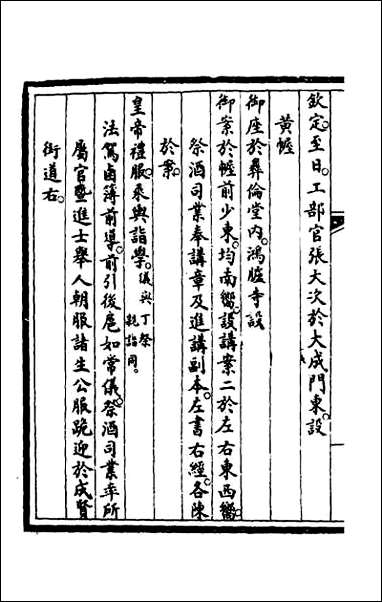 欽定至日工部官張大次於大成門東設
黃幄
御座於彝倫堂内鴻臚寺設
御案於幄前少東均南嚮設講案二於左右東西嚮
祭酒司業奉講章及進講副本左書右經各陳
於案
皇帝禮服乘輿詣學儀與丁祭親詣同。
法駕鹵簿前導前引後扈如常儀祭酒司業率所
屬官暨進士舉人朝服諸生公服跪迎於成賢
街道右